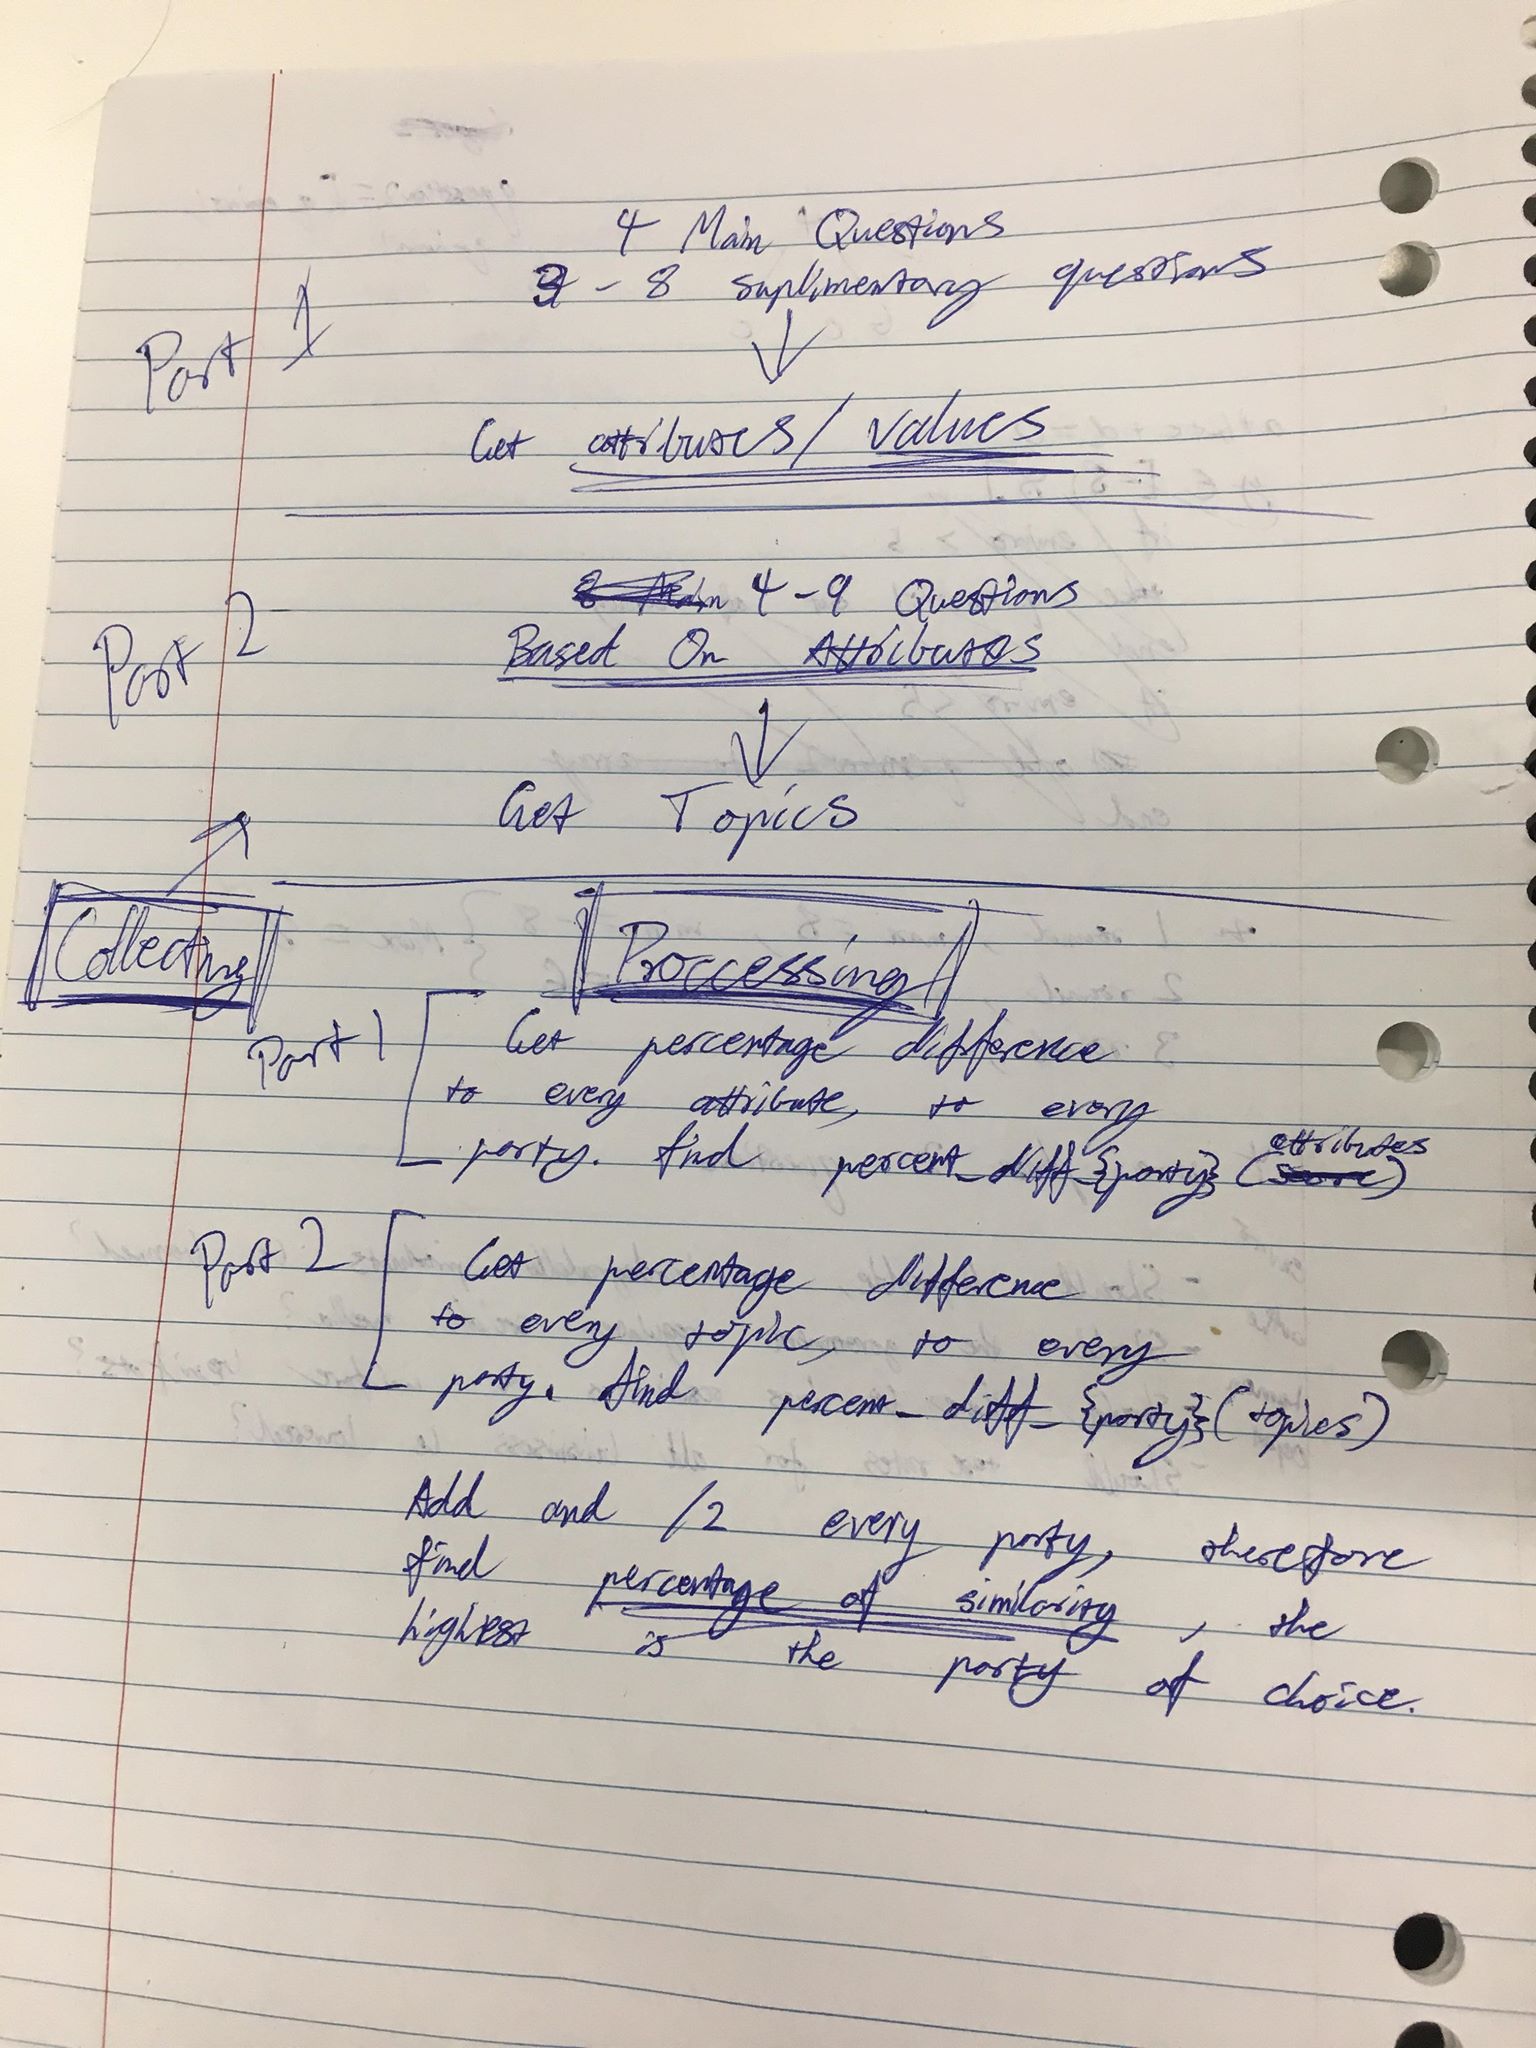 4 Main Questions
- 8 suplimentary questions
Part 1
Get attributes/values
4-9 Questions
Part 2
Based On Attributes
Get Topics
Collecting
Proccessing
Part 1
Get percentage difference
to every attribute, to every
party. find percent_diff_{party} (attributes)
Part 2
Get percentage difference
to every topic, to every
party. find percent_diff_{party} (topics)
Add and /2 every party, therefore
find percentage of similarity, the
highest is the party of choice.